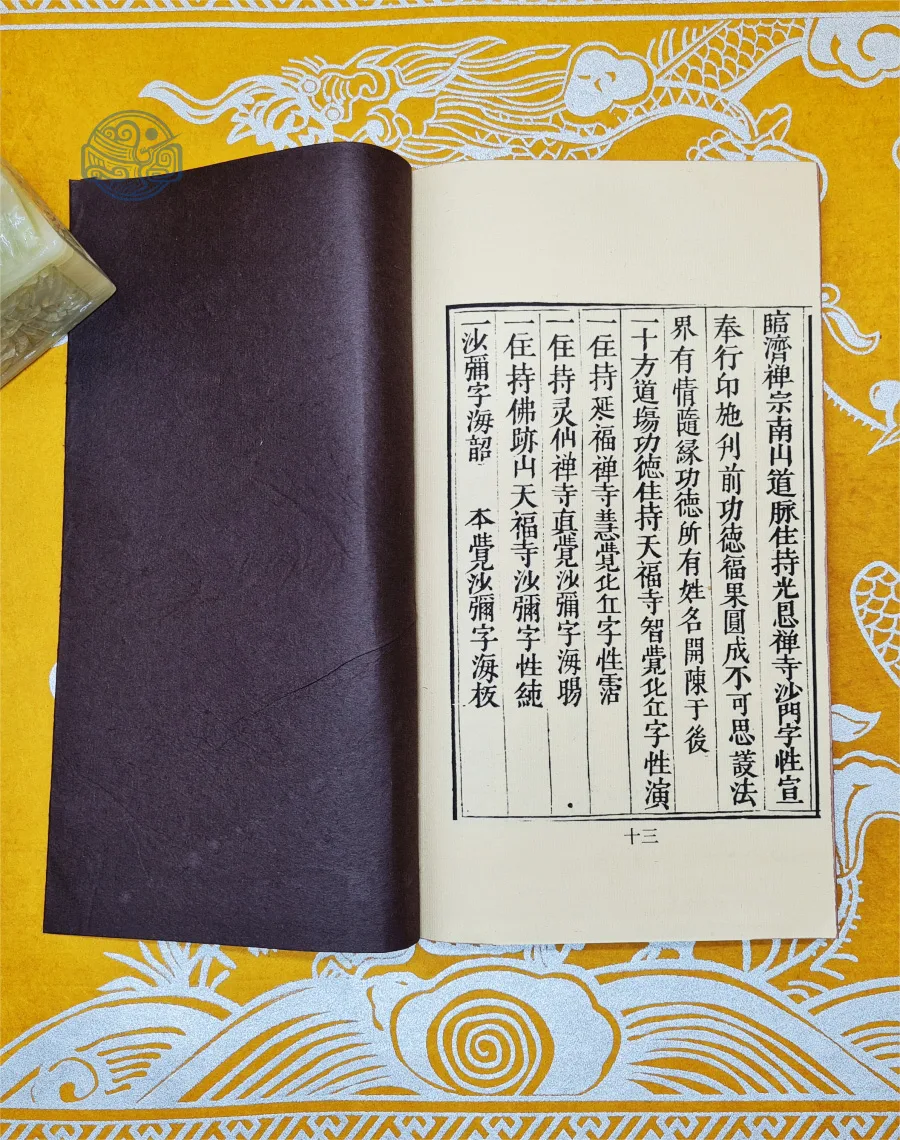 臨濟禅宗南山道脈住持光恩禅寺沙門字性宣
奉行印施刋前功德福果圓成不可思議法
界有情隨緣功德所有姓名開陳于後
一十方道塲功德住持天福寺智覺比丘字性演
一住持延福禅寺慧覺比丘字性霑
一住持灵仙禅寺真覺沙彌字海暘
一住持佛跡山天福寺沙彌字性純
一沙彌字海韶 本覺沙彌字海板
十三